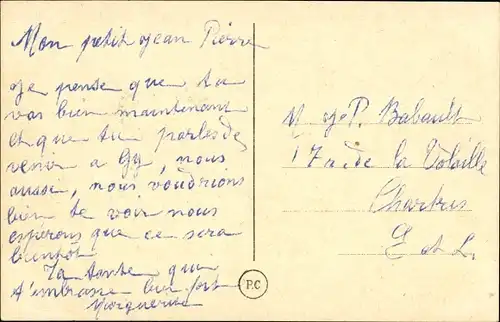 Mon petit Jean Pierre
Je pense que tu
vas bien maintenant
et que tu parles de
venir a Gy, nous
aussi, nous voudrions
bien te voir nous
esperons que ce sera
bientôt
Ta tante qui
t'embrasse bien fort
Marguerite
M J.P. Babault
17 de la Volaille
Chartres
E et L.
P.C